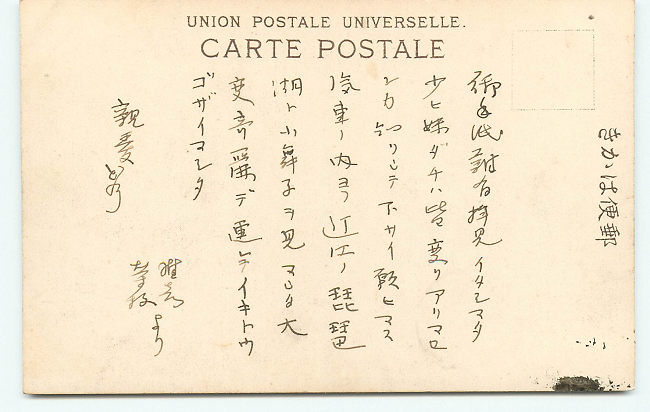 UNION POSTALE UNIVERSELLE.
CARTE POSTALE
きかは便郵
御手紙難有拝見イタシマシタ
妹ダチハ皆変リアリマセ
ンカ知ラシテ下サイ願ヒマス
汽車ノ内ヨリ近江ノ琵琶
湖ト小舞子ヲ見マシタ大
変奇麗デ イキトウ
ゴザイマシタ
親愛
より